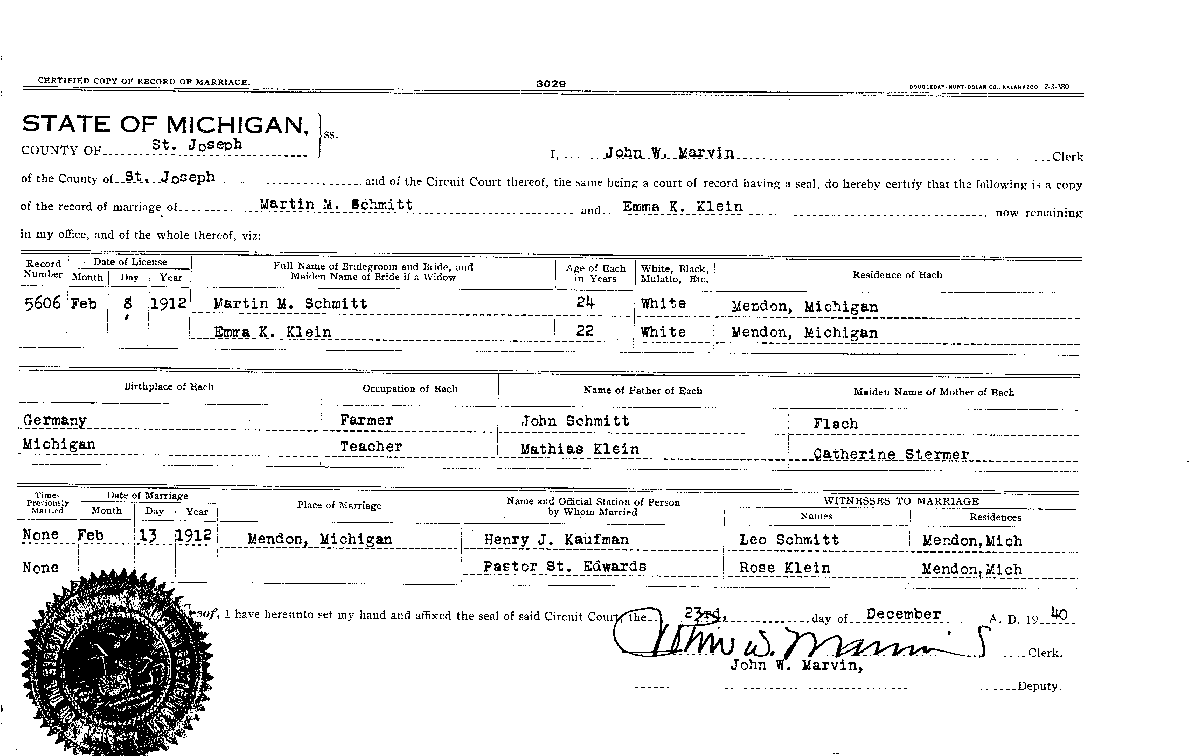 CERTIFIED COPY OF RECORD OF MARRIAGE. 3029 DOUBLEDAY-HUNT-DOLAN CO., KALAMAZOO
STATE OF MICHIGAN, ss.
COUNTY OF St. Joseph
I, John W. Marvin Clerk
of the County of St. Joseph and of the Circuit Court thereof, the same being a court of record having a seal, do hereby certify that the following is a copy
of the record of marriage of Martin M. Schmitt and Emma K. Klein now remaining
in my office, and of the whole thereof, viz:
Record Number Date of License Month Day Year Full Name of Bridegroom and Bride, and Maiden Name of Bride if a Widow Age of Each in Years White, Black, Mulatto, Etc. Residence of Each
5606 Feb 8 1912 Martin M. Schmitt 24 White Mendon, Michigan
Emma K. Klein 22 White Mendon, Michigan
Birthplace of Each Occupation of Each Name of Father of Each Maiden Name of Mother of Each
Germany Farmer John Schmitt Flach
Michigan Teacher Mathias Klein Catherine Stermer
Times Previously Married Date of Marriage Month Day Year Place of Marriage Name and Official Station of Person by Whom Married WITNESSES TO MARRIAGE Names Residences
None Feb 13 1912 Mendon, Michigan Henry J. Kaufman Leo Schmitt Mendon,Mich
None Pastor St. Edwards Rose Klein Mendon,Mich
I have hereunto set my hand and affixed the seal of said Circuit Court the 23rd. day of December A. D. 19 40
John W. Marvin Clerk.
John W. Marvin,
Deputy.